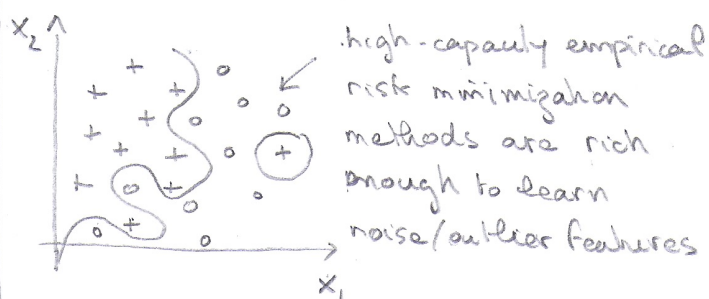 X₂
high-capacity empirical
risk minimization
methods are rich
enough to learn
noise/outlier features
X₁